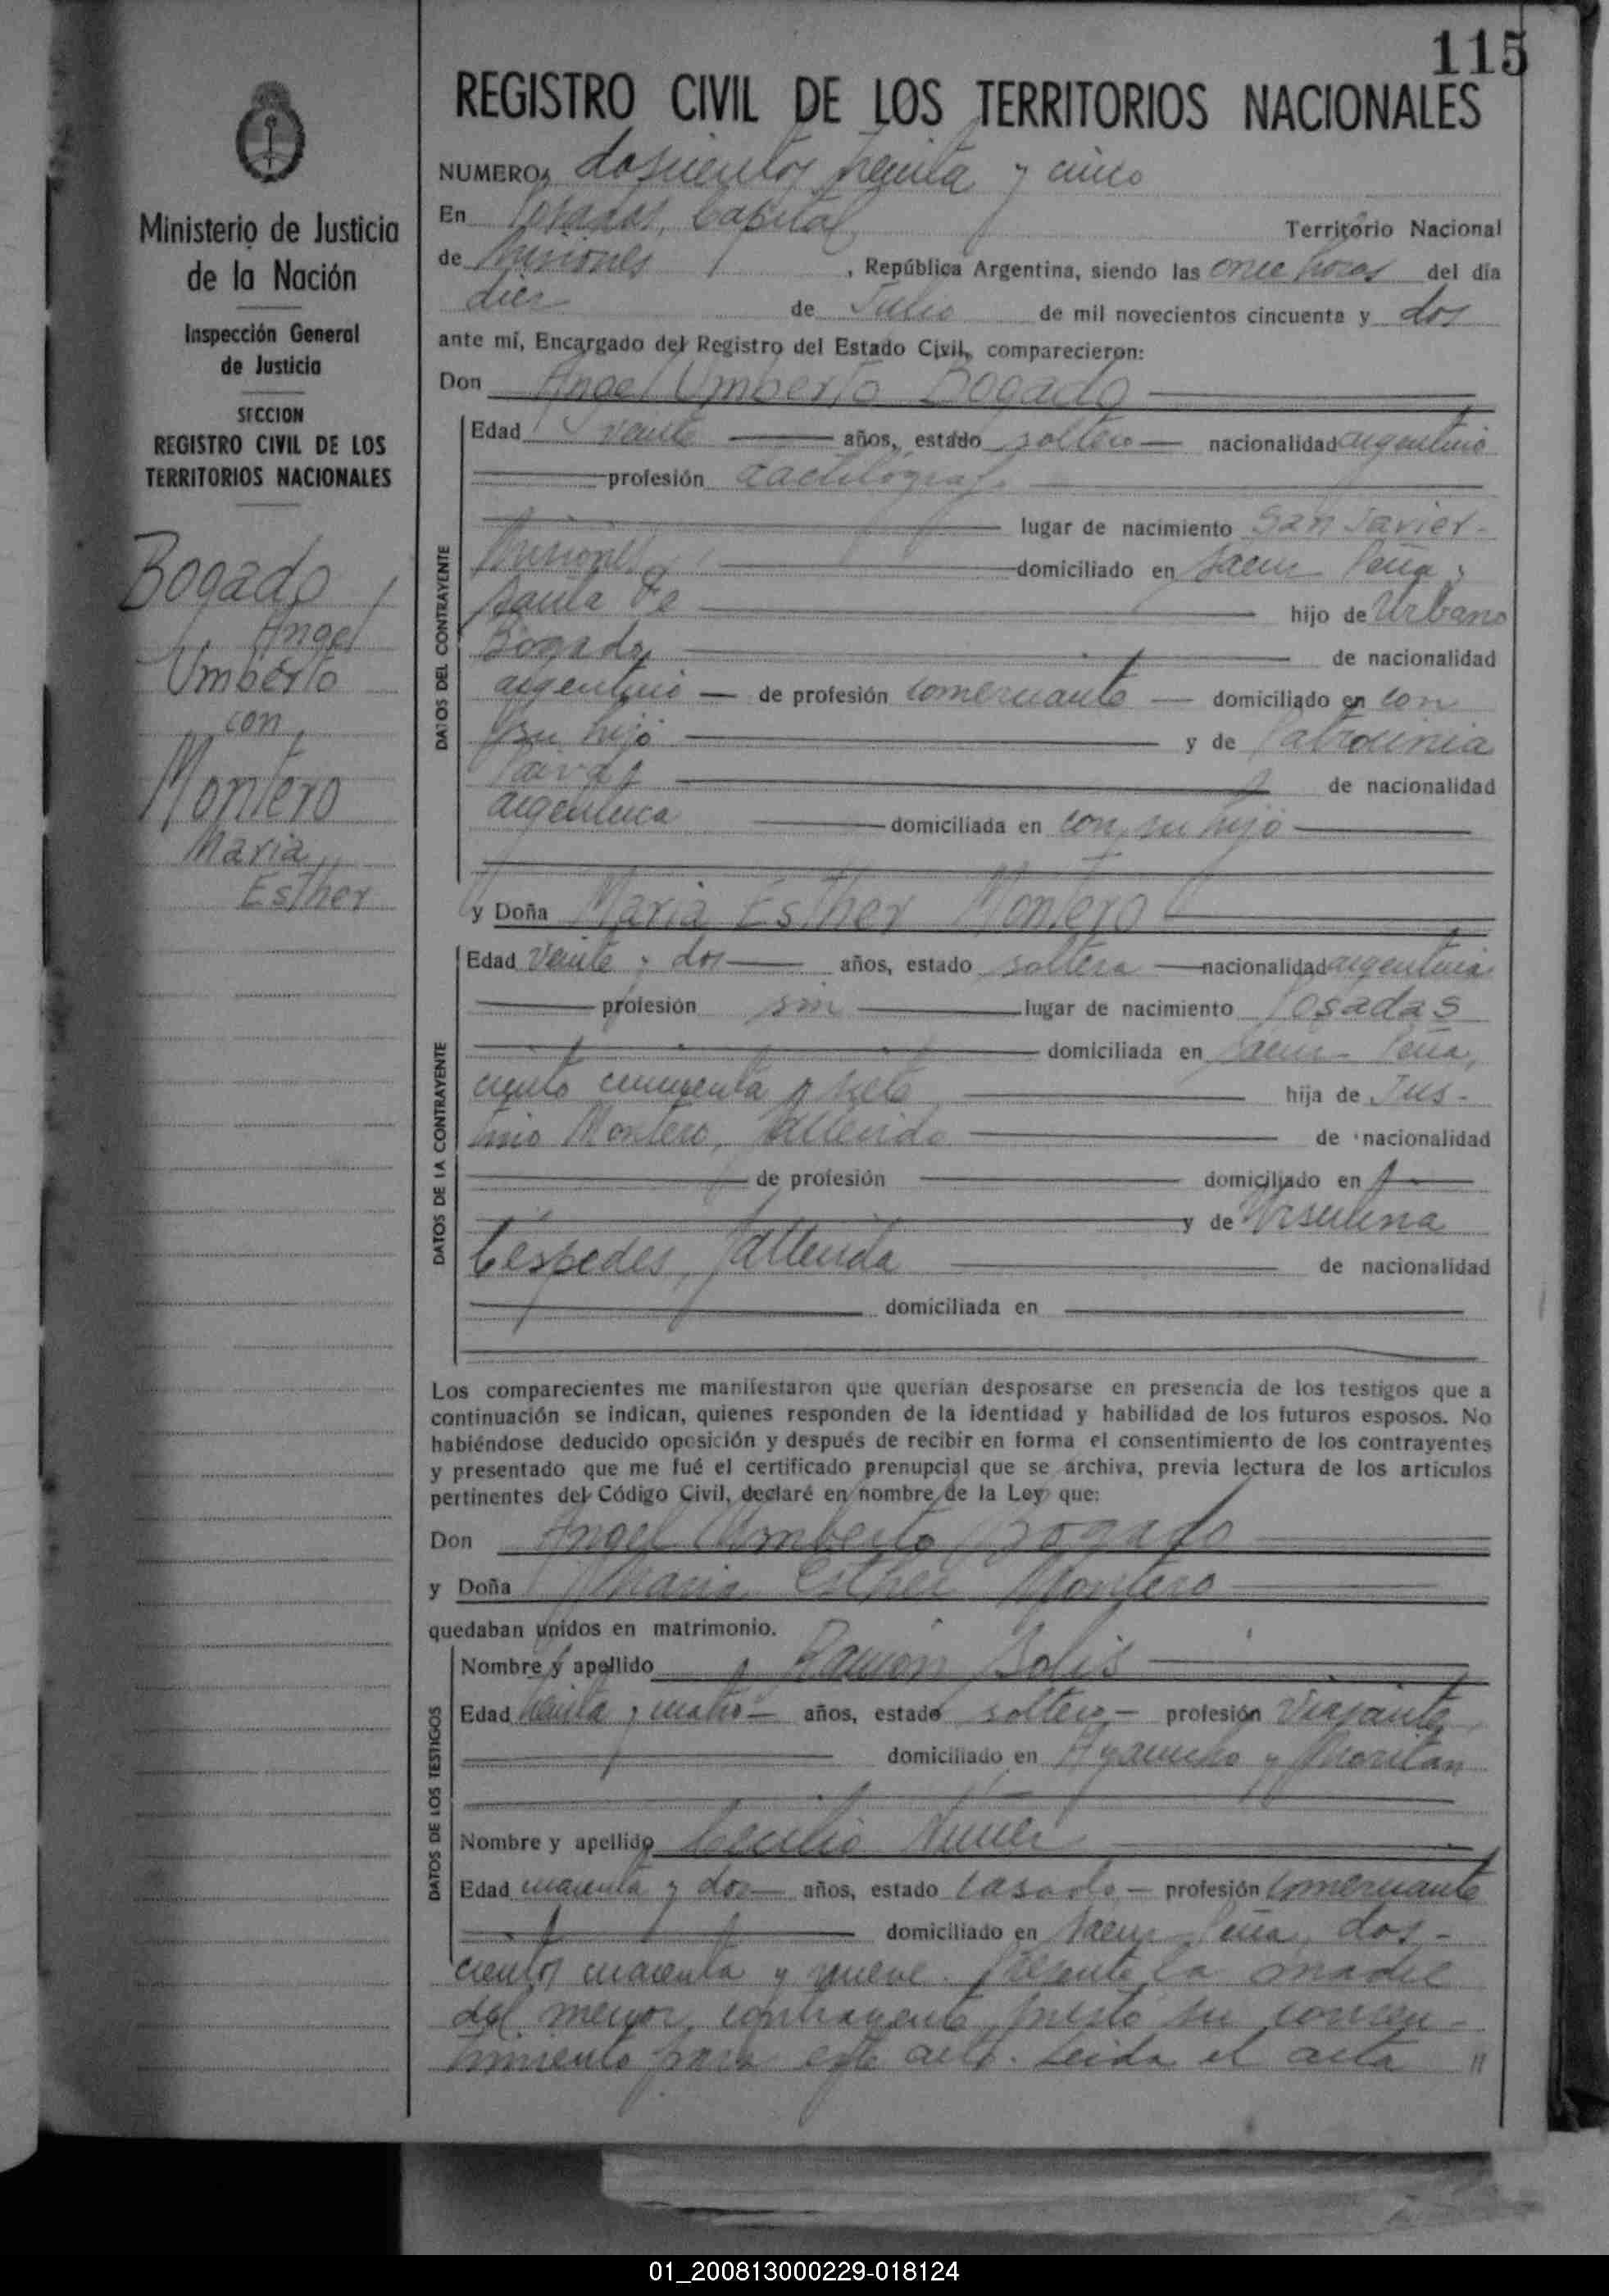 115
REGISTRO CIVIL DE LOS TERRITORIOS NACIONALES
Ministerio de Justicia
de la Nación
Inspección General
de Justicia
SECCION
REGISTRO CIVIL DE LOS
TERRITORIOS NACIONALES
Bogado
Angel
Umberto
con
Montero
Maria
Esther
NUMERO, doscientos treinta y cinco
En Posadas, Capital Territorio Nacional
de Misiones , República Argentina, siendo las once horas del día
diez de Julio de mil novecientos cincuenta y dos
ante mí, Encargado del Registro del Estado Civil, comparecieron:
Don Angel Umberto Bogado
DATOS DEL CONTRAYENTE
Edad veinte años, estado soltero nacionalidad argentino
profesión dactilógrafo
lugar de nacimiento San Javier-
Misiones domiciliado en Saenz Peña y
Santa Fe hijo de Urbano
Bogado de nacionalidad
argentino de profesión comerciante domiciliado en con
su hijo y de Patrocinia
de nacionalidad
argentina domiciliada en con su hijo
y Doña Maria Esther Montero
DATOS DE LA CONTRAYENTE
Edad veinte y dos años, estado soltera nacionalidad argentina
profesión sin lugar de nacimiento Posadas
domiciliada en Saenz Peña,
ciento cincuenta y siete hija de Jus-
tino Montero, fallecido de nacionalidad
de profesión domiciliado en
y de Ursulina
Céspedes, fallecida de nacionalidad
domiciliada en
Los comparecientes me manifestaron que querían desposarse en presencia de los testigos que a
continuación se indican, quienes responden de la identidad y habilidad de los futuros esposos. No
habiéndose deducido oposición y después de recibir en forma el consentimiento de los contrayentes
y presentado que me fué el certificado prenupcial que se archiva, previa lectura de los artículos
pertinentes del Código Civil, declaré en nombre de la Ley que:
Don Angel Umberto Bogado
y Doña Maria Esther Montero
quedaban unidos en matrimonio.
DATOS DE LOS TESTIGOS
Nombre y apellido Ramón Solis
Edad treinta y cuatro años, estado soltero profesión viajante
domiciliado en Ayacucho y Moritan
Nombre y apellido Cecilio Nuñez
Edad cuarenta y dos años, estado casado profesión comerciante
domiciliado en Saenz Peña, dos-
cientos cuarenta y nueve. Presente la madre
del menor contrayente prestó su consen-
timiento para este acto. Leída el acta "
01_200813000229-018124